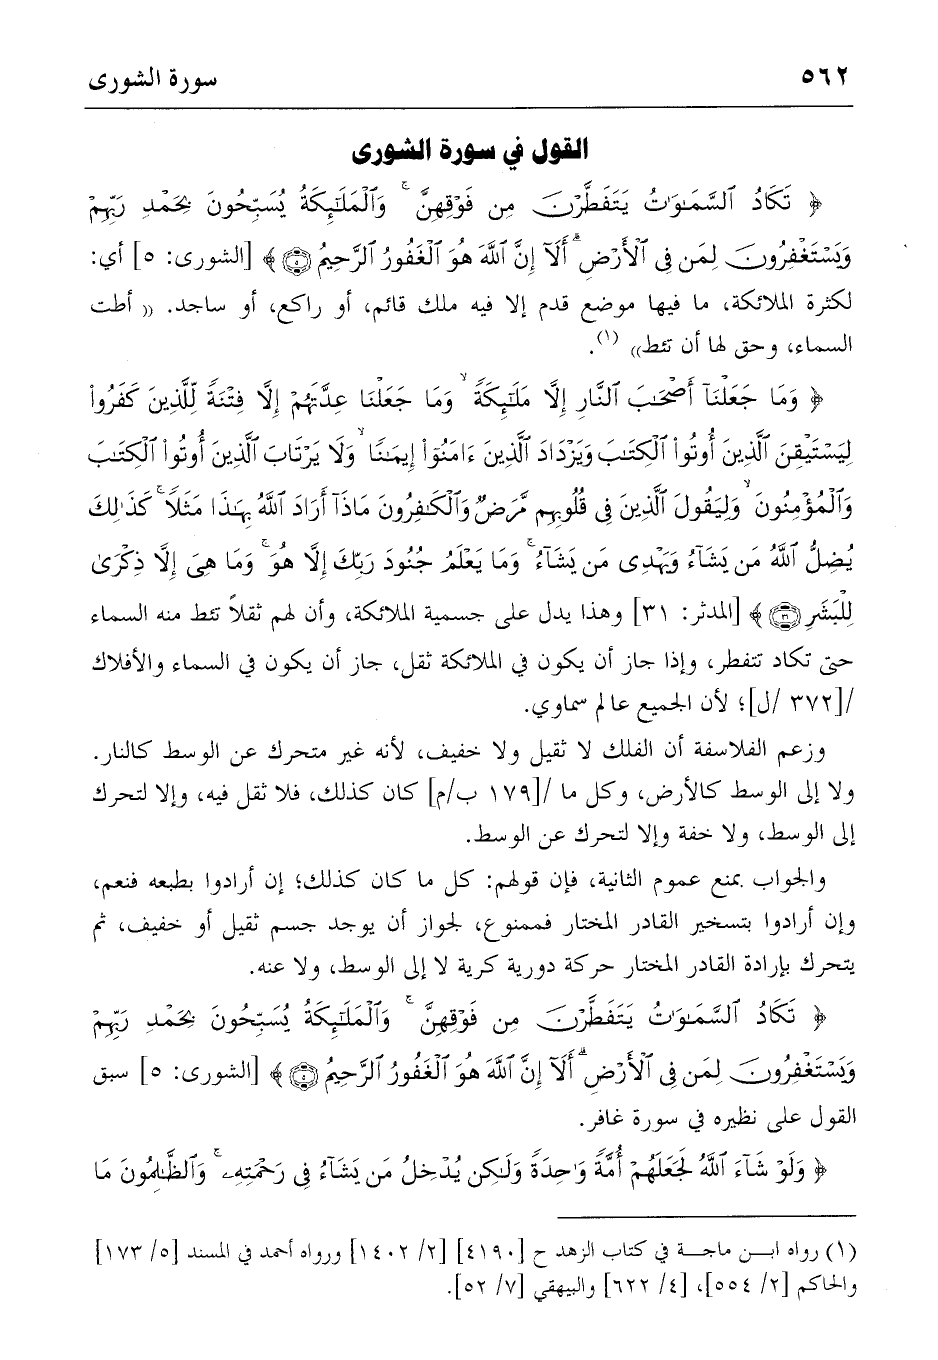 ٥٦٢
سورة الشورى
القول في سورة الشورى
﴿ تَكَادُ ٱلسَّمَٰوَٰتُ يَتَفَطَّرْنَ مِن فَوْقِهِنَّ ۚ وَٱلْمَلَٰٓئِكَةُ يُسَبِّحُونَ بِحَمْدِ رَبِّهِمْ
وَيَسْتَغْفِرُونَ لِمَن فِى ٱلْأَرْضِ ۗ أَلَآ إِنَّ ٱللَّهَ هُوَ ٱلْغَفُورُ ٱلرَّحِيمُ ۝٥ ﴾ [الشورى: ٥] أي:
لكثرة الملائكة، ما فيها موضع قدم إلا فيه ملك قائم، أو راكع، أو ساجد. (( أطت
السماء، وحق لها أن تئط)) (١).
﴿ وَمَا جَعَلْنَآ أَصْحَٰبَ ٱلنَّارِ إِلَّا مَلَٰٓئِكَةً ۙ وَمَا جَعَلْنَا عِدَّتَهُمْ إِلَّا فِتْنَةً لِّلَّذِينَ كَفَرُوا۟
لِيَسْتَيْقِنَ ٱلَّذِينَ أُوتُوا۟ ٱلْكِتَٰبَ وَيَزْدَادَ ٱلَّذِينَ ءَامَنُوٓا۟ إِيمَٰنًا ۙ وَلَا يَرْتَابَ ٱلَّذِينَ أُوتُوا۟ ٱلْكِتَٰبَ
وَٱلْمُؤْمِنُونَ ۙ وَلِيَقُولَ ٱلَّذِينَ فِى قُلُوبِهِم مَّرَضٌ وَٱلْكَٰفِرُونَ مَاذَآ أَرَادَ ٱللَّهُ بِهَٰذَا مَثَلًا ۚ كَذَٰلِكَ
يُضِلُّ ٱللَّهُ مَن يَشَآءُ وَيَهْدِى مَن يَشَآءُ ۚ وَمَا يَعْلَمُ جُنُودَ رَبِّكَ إِلَّا هُوَ ۚ وَمَا هِىَ إِلَّا ذِكْرَىٰ
لِلْبَشَرِ ۝٣١ ﴾ [المدثر: ٣١] وهذا يدل على جسمية الملائكة، وأن لهم ثقلاً تئط منه السماء
حتى تكاد تتفطر، وإذا جاز أن يكون في الملائكة ثقل، جاز أن يكون في السماء والأفلاك
/[٣٧٢ /ل]؛ لأن الجميع عالم سماوي.
وزعم الفلاسفة أن الفلك لا ثقيل ولا خفيف، لأنه غير متحرك عن الوسط كالنار.
ولا إلى الوسط كالأرض، وكل ما /[١٧٩ ب/م] كان كذلك، فلا ثقل فيه، وإلا لتحرك
إلى الوسط، ولا خفة وإلا لتحرك عن الوسط.
والجواب بمنع عموم الثانية، فإن قولهم: كل ما كان كذلك؛ إن أرادوا بطبعه فنعم،
وإن أرادوا بتسخير القادر المختار فممنوع، لجواز أن يوجد جسم ثقيل أو خفيف، ثم
يتحرك بإرادة القادر المختار حركة دورية كرية لا إلى الوسط، ولا عنه.
﴿ تَكَادُ ٱلسَّمَٰوَٰتُ يَتَفَطَّرْنَ مِن فَوْقِهِنَّ ۚ وَٱلْمَلَٰٓئِكَةُ يُسَبِّحُونَ بِحَمْدِ رَبِّهِمْ
وَيَسْتَغْفِرُونَ لِمَن فِى ٱلْأَرْضِ ۗ أَلَآ إِنَّ ٱللَّهَ هُوَ ٱلْغَفُورُ ٱلرَّحِيمُ ۝٥ ﴾ [الشورى: ٥] سبق
القول على نظيره في سورة غافر.
﴿ وَلَوْ شَآءَ ٱللَّهُ لَجَعَلَهُمْ أُمَّةً وَٰحِدَةً وَلَٰكِن يُدْخِلُ مَن يَشَآءُ فِى رَحْمَتِهِۦ ۚ وَٱلظَّٰلِمُونَ مَا
(١) رواه ابن ماجة في كتاب الزهد ح [٤١٩٠] [٢/ ١٤٠٢] ورواه أحمد في المسند [٥/ ١٧٣]
والحاكم [٢/ ٥٥٤]، [٤/ ٦٢٢] والبيهقي [٧/ ٥٢].